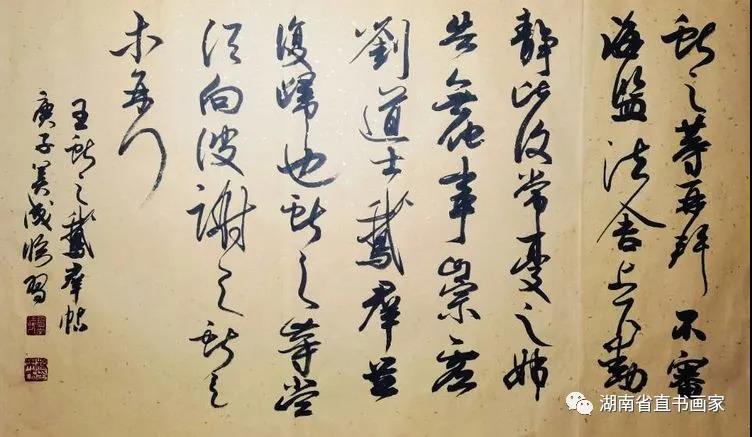 獻之等再拜不審
海鹽諸舍上下動
靜比復常憂之姊
告無他事崇虛
劉道士鵝羣並
復歸也獻之等當
須向彼謝之獻之
等再拜
王獻之鵝羣帖
庚子臨習
湖南省直书画家